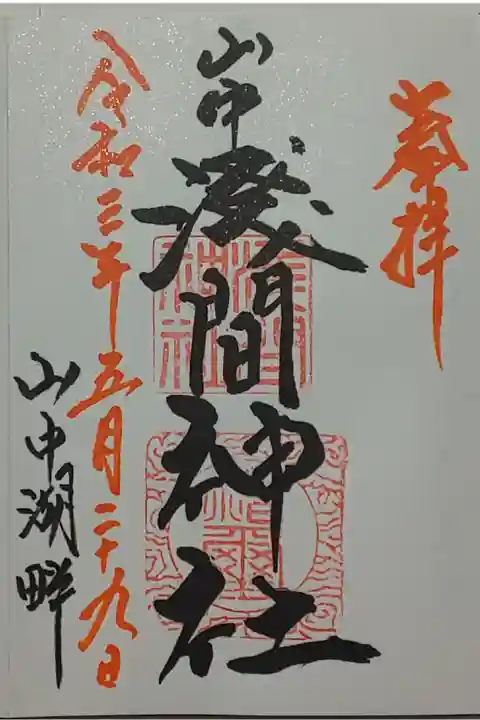 奉拝
山中淺間神社
令和三年五月二十九日
山中湖畔